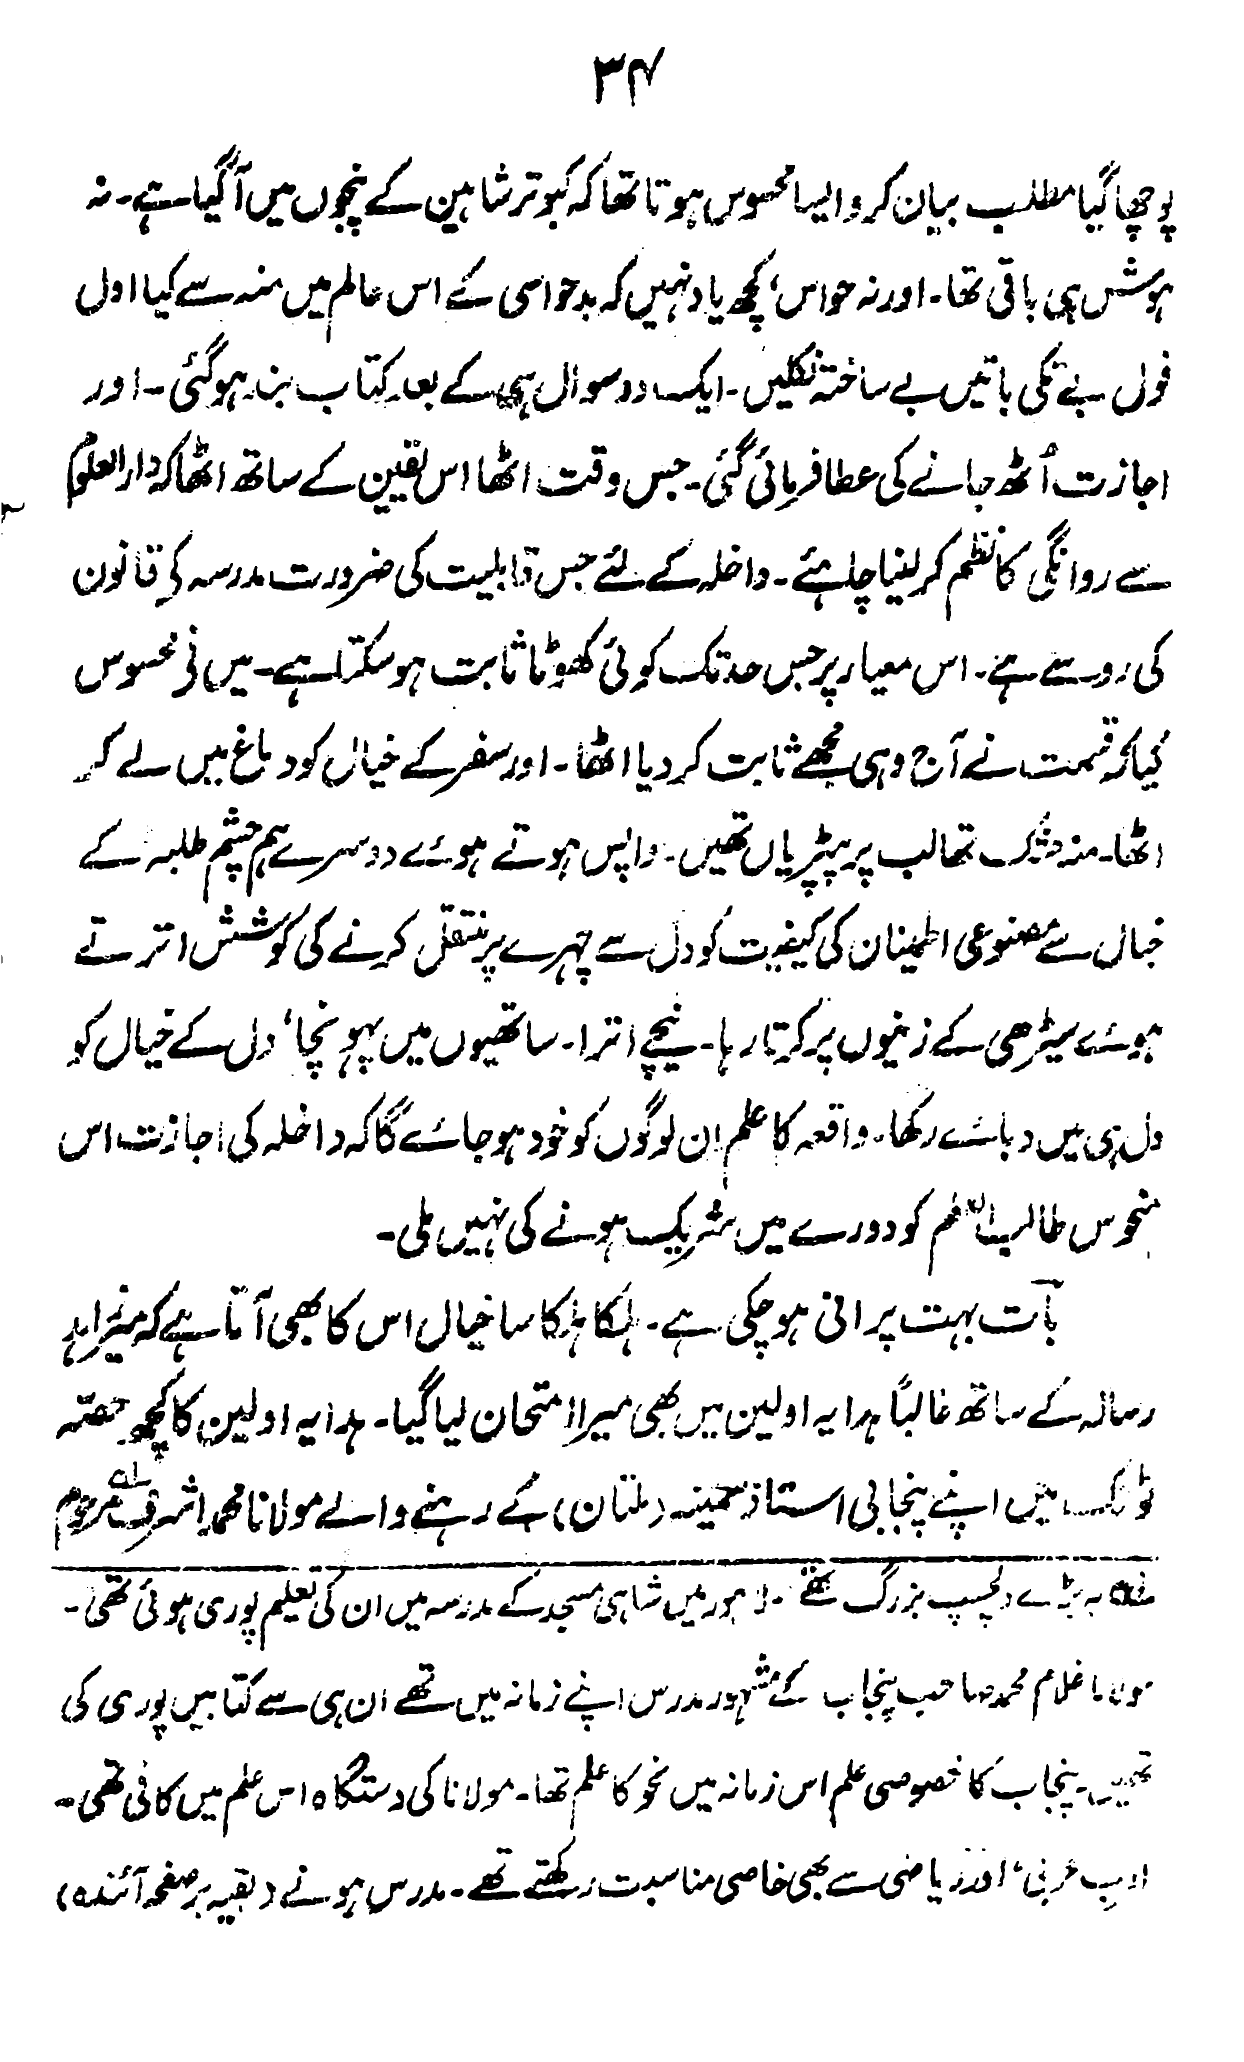 ۳۴
پوچھا گیا مطلب بیان کرو ایسا محسوس ہوتا تھا کہ کبوتر شاہین کے پنجوں میں آگیا ہے۔ نہ
ہوش ہی باقی تھا۔ اور نہ حواس، کچھ یاد نہیں کہ بدحواسی کے اس عالم میں منہ سے کیا اول
فول بے تکی باتیں بے ساختہ نکلیں۔ ایک دو سوال ہی کے بعد کتاب بند ہوگئی۔ اور
اجازت اُٹھ جانے کی عطا فرمائی گئی۔ جس وقت اٹھا اس یقین کے ساتھ اٹھا کہ دارالعلوم
سے روانگی کا نظم کرلینا چاہئے۔ داخلہ کے لئے جس قابلیت کی ضرورت مدرسہ کے قانون
کی رو سے ہے۔ اس معیار پر جس حد تک کوئی کھوٹا ثابت ہوسکتا ہے۔ میں نے محسوس
کیا کہ قسمت نے آج وہی مجھے ثابت کردیا اٹھا۔ اور سفر کے خیال کو دماغ میں لے کر
اٹھا۔ منہ خشک تھا لب پر پپڑیاں تھیں۔ واپس ہوتے ہوئے دوسرے ہم چشم طلبہ کے
خیال سے مصنوعی اطمینان کی کیفیت کو دل سے چہرے پر منتقل کرنے کی کوشش اترتے
ہوئے سیڑھی کے زینوں پر کرتا رہا۔ نیچے اترا۔ ساتھیوں میں پہونچا، دل کے خیال کو
دل ہی میں دبائے رکھا۔ واقعہ کا علم ان لوگوں کو خود ہوجائے گا کہ داخلہ کی اجازت اس
منحوس طالب العلم کو دورے میں شریک ہونے کی نہیں ملی۔
بات بہت پرانی ہوچکی ہے۔ ہلکا ہلکا سا خیال اس کا بھی آتا ہے کہ میرزاہد
رسالہ کے ساتھ غالباً ہدایہ اولین میں بھی میرا امتحان لیا گیا۔ ہدایہ اولین کا کچھ حصّہ
ٹونک میں اپنے پنجابی استاذ سمینہ (ملتان) کے رہنے والے مولانا محمد اشرف لہ مرحوم
لہ یہ بڑے دلچسپ بزرگ تھے۔ لاہور میں شاہی مسجد کے مدرسہ میں ان کی تعلیم پوری ہوئی تھی۔
مولانا غلام محمد صاحب پنجاب کے مشہور مدرس اپنے زمانہ میں تھے ان ہی سے کتابیں پوری کی
تھیں۔ پنجاب کا خصوصی علم اس زمانہ میں نحو کا علم تھا۔ مولانا کی دستگاہ اس علم میں کافی تھی۔
ادب عربی، اور ریاضی سے بھی خاصی مناسبت رکھتے تھے۔ مدرس ہونے (بقیہ بر صفحہ آئندہ)